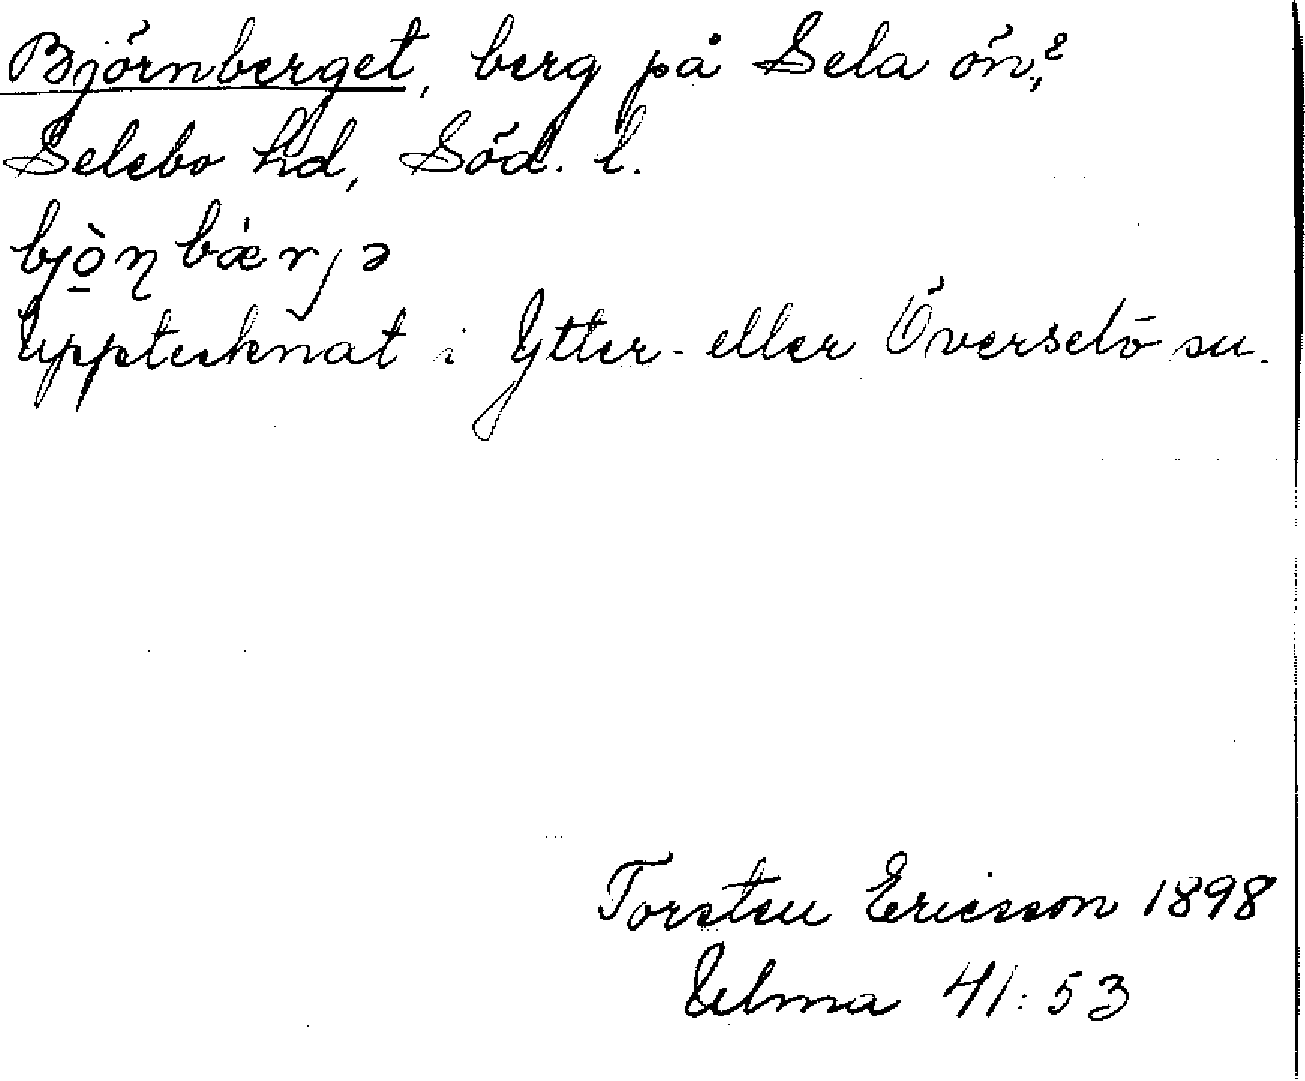 Björnberget, berg på Sela ön,?
Selebo hd, Söd. l.
bjò̱ŋbǽrjə
Upptecknat i Ytter- eller Överselö sn.
Torsten Ericsson 1898
Ulma 41:53